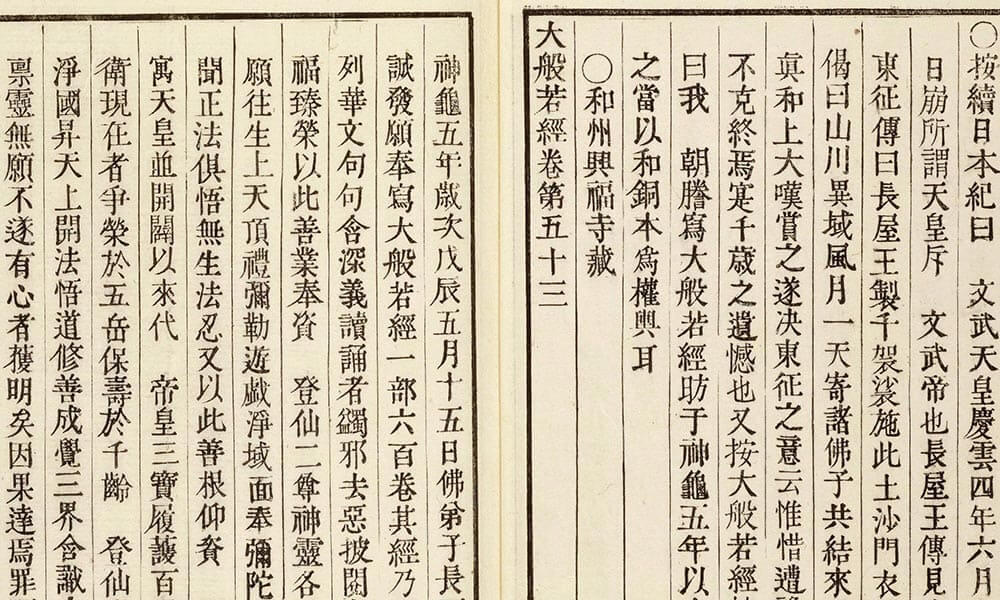 〇按續日本紀曰　文武天皇慶雲四年六月
日崩所謂天皇斥　文武帝也長屋王傳見
東征傳曰長屋王製千袈裟施此土沙門衣
偈曰山川異域風月一天寄諸佛子共結來
眞和上大嘆賞之遂决東征之意云惟惜遭
不克終焉寔千歳之遺憾也又按大般若經
曰我　朝謄寫大般若經昉于神龜五年以
之當以和銅本爲權輿耳
〇和州興福寺藏
大般若經卷第五十三
神龜五年歳次戊辰五月十五日佛弟子長
誠發願奉寫大般若經一部六百卷其經乃
列華文句句含深義讀誦者蠲邪去惡披閱
福臻榮以此善業奉資　登仙二尊神靈各
願往生上天頂禮彌勒遊戯淨域面奉彌陀
聞正法俱悟無生法忍又以此善根仰資
寓天皇並開闢以來代　帝皇三寶履護百
衛現在者爭榮於五岳保壽於千齡　登仙
淨國昇天上開法悟道修善成覺三界含識
禀靈無願不遂有心者獲明矣因果達焉罪